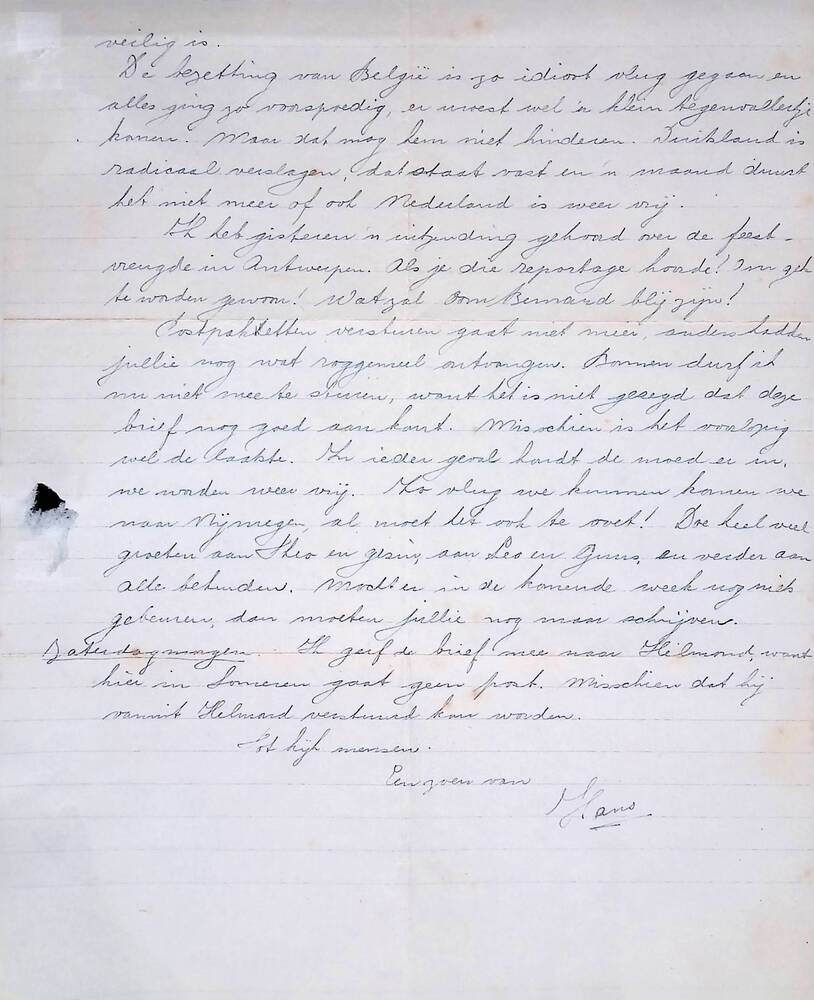 veilig is.
De bezetting van België is zo idioot vlug gegaan en
alles ging zo voorspoedig, er moest wel 'n klein tegenvallertje
komen. Maar dat mag hem niet hinderen. Duitsland is
radicaal verslagen, dat staat vast en 'n maand duurt
het niet meer of ook Nederland is weer vrij.
Ik heb gisteren 'n uitzending gehoord over de feest-
vreugde in Antwerpen. Als je die reportage hoorde! Om gek
te worden gewoon! Wat zal Oom Bernard blij zijn!
Postpakketten versturen gaat niet meer, anders hadden
jullie nog wat roggemeel ontvangen. Bonnen durf ik
nu niet mee te sturen, want het is niet gezegd dat deze
brief nog goed aan komt. Misschien is het voorlopig
wel de laatste. In ieder geval houdt de moed er in,
we worden weer vrij. Zo vlug we kunnen komen we
naar Nijmegen, al moet het ook te voet! Doe heel veel
groeten aan Theo en gezin, aan Leo en Guus, en verder aan
alle bekenden. Mocht er in de komende week nog niets
gebeuren, dan moeten jullie nog maar schrijven.
Zaterdagmorgen. Ik geef de brief mee naar Helmond, want
hier in Someren gaat geen post. Misschien dat hij
vanuit Helmond verstuurd kan worden.
Tot kijk mensen.
Een zoen van
Hans